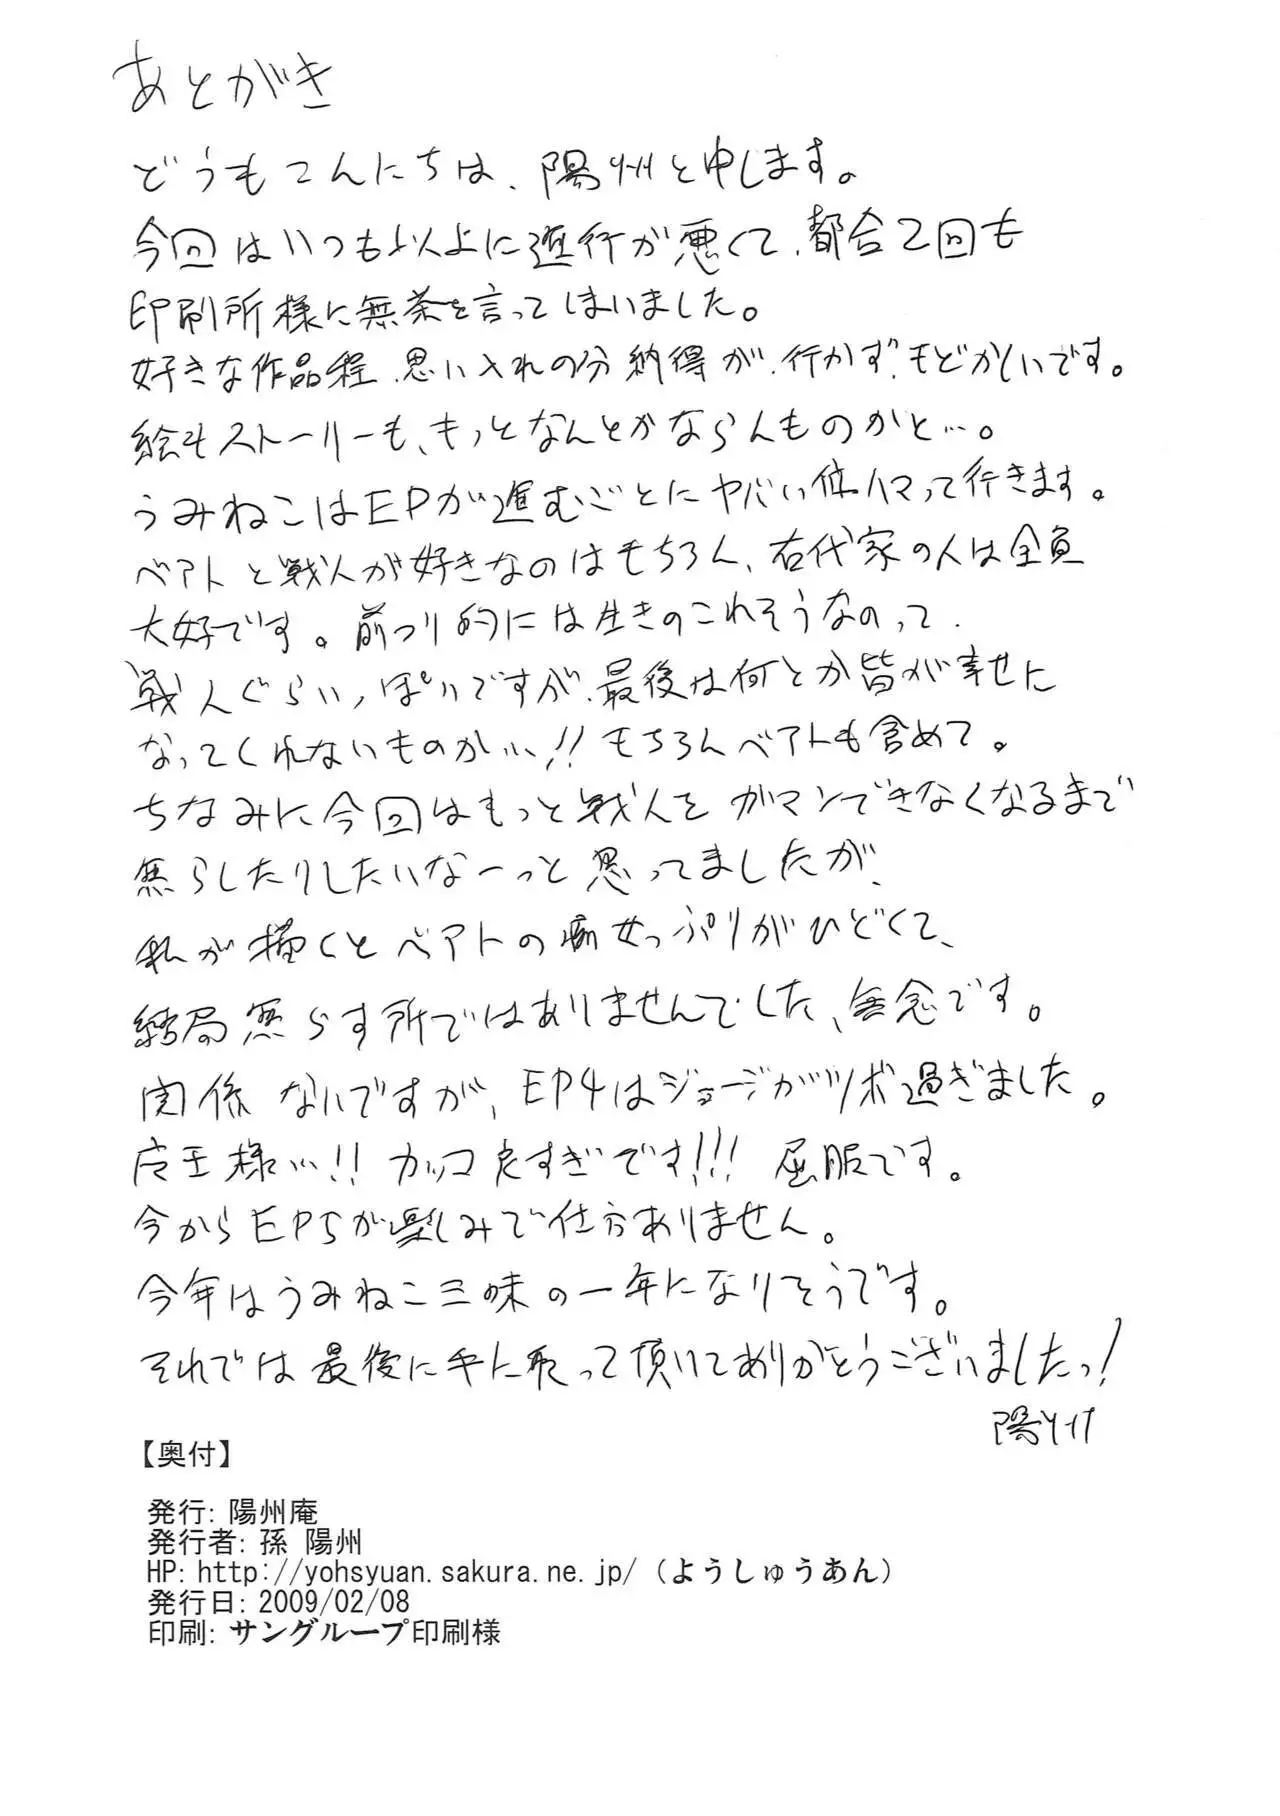 あとがき
どうもこんにちは、陽州と申します。
今回はいつも以上に進行が悪くて、都合2回も
印刷所様に無茶を言ってしまいました。
好きな作品程、思い入れの分納得が行かずもどかしいです。
絵もストーリーも、もっとなんとかならんものかと…。
うみねこはEPが進むごとにヤバい位ハマって行きます。
ベアトと戦人が好きなのはもちろん、右代家の人は全員
大好です。前フリ的には生きのこれそうなのって
戦人ぐらいっぽいですが、最後は何とか皆が幸せに
なってくれないものか…!! もちろんベアトも含めて。
ちなみに今回はもっと戦人をガマンできなくなるまで
焦らしたりしたいなーっと思ってましたが、
私が描くとベアトの痴女っぷりがひどくて、
結局焦らす所ではありませんでした、無念です。
関係ないですが、EP4はジョージがツボ過ぎました。
店王様…!! カッコ良すぎです!!! 屈服です。
今からEP5が楽しみで仕方ありません。
今年はうみねこ三昧の一年になりそうです。
それでは最後に手に取って頂いてありがとうございましたっ!
陽州
【奥付】
発行: 陽州庵
発行者: 孫 陽州
HP: http://yohsyuan.sakura.ne.jp/ (ようしゅうあん)
発行日: 2009/02/08
印刷: サングループ印刷様